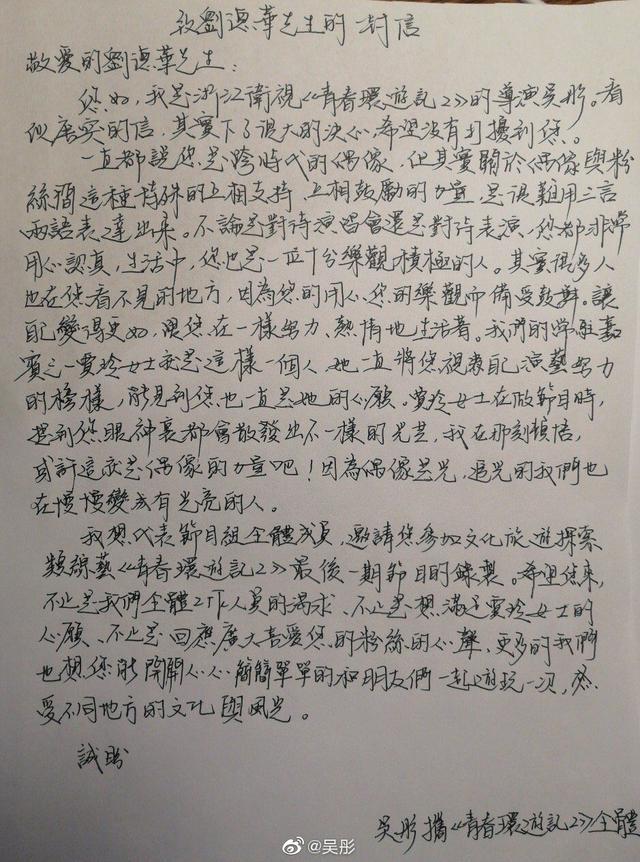 致劉德華先生的一封信
敬愛的劉德華先生：
您好，我是浙江衛視《青春環遊記2》的導演吴彤。看
似唐突的信，其實下了很大的決心，希望没有打擾到您。
一直都說您是跨時代的偶像，但其實關於偶像與粉
絲間這種特殊的互相支持、互相鼓勵的力量，是很難用三言
兩語表達出来。不論是對待演唱會還是對待表演，您都非常
用心認真，生活中，您也是一位十分樂觀積極的人。其實很多人
也在您看不見的地方，因為您的用心，您的樂觀而備受鼓舞。讓
自己變得更好，跟您在一樣努力、熱情地生活著。我們的常駐嘉
賓之一賈玲女士就是這樣一個人，她一直將您視爲自己演藝努力
的榜樣，能見到您也一直是她的心願。賈玲女士在做節目時，
提到您眼神裏都會散發出不一樣的光芒，我在那刻頓悟，
或許這就是偶像的力量吧！因為偶像是光，追光的我們也
在慢慢變成有光亮的人。
我想代表節目組全體成員，邀請您參加文化旅遊探索
類綜藝《青春環遊記2》最後一期節目的錄製。希望您来，
不止是我們全體工作人員的渴求、不止是想滿足賈玲女士的
心願、不止是回應廣大喜愛您的粉絲的心聲，更多的我們
也想您能開開心心、簡簡單單的和朋友們一起遊玩一次，感
受不同地方的文化與風光。
誠盼
吴彤攜《青春環遊記2》全體
@吴彤